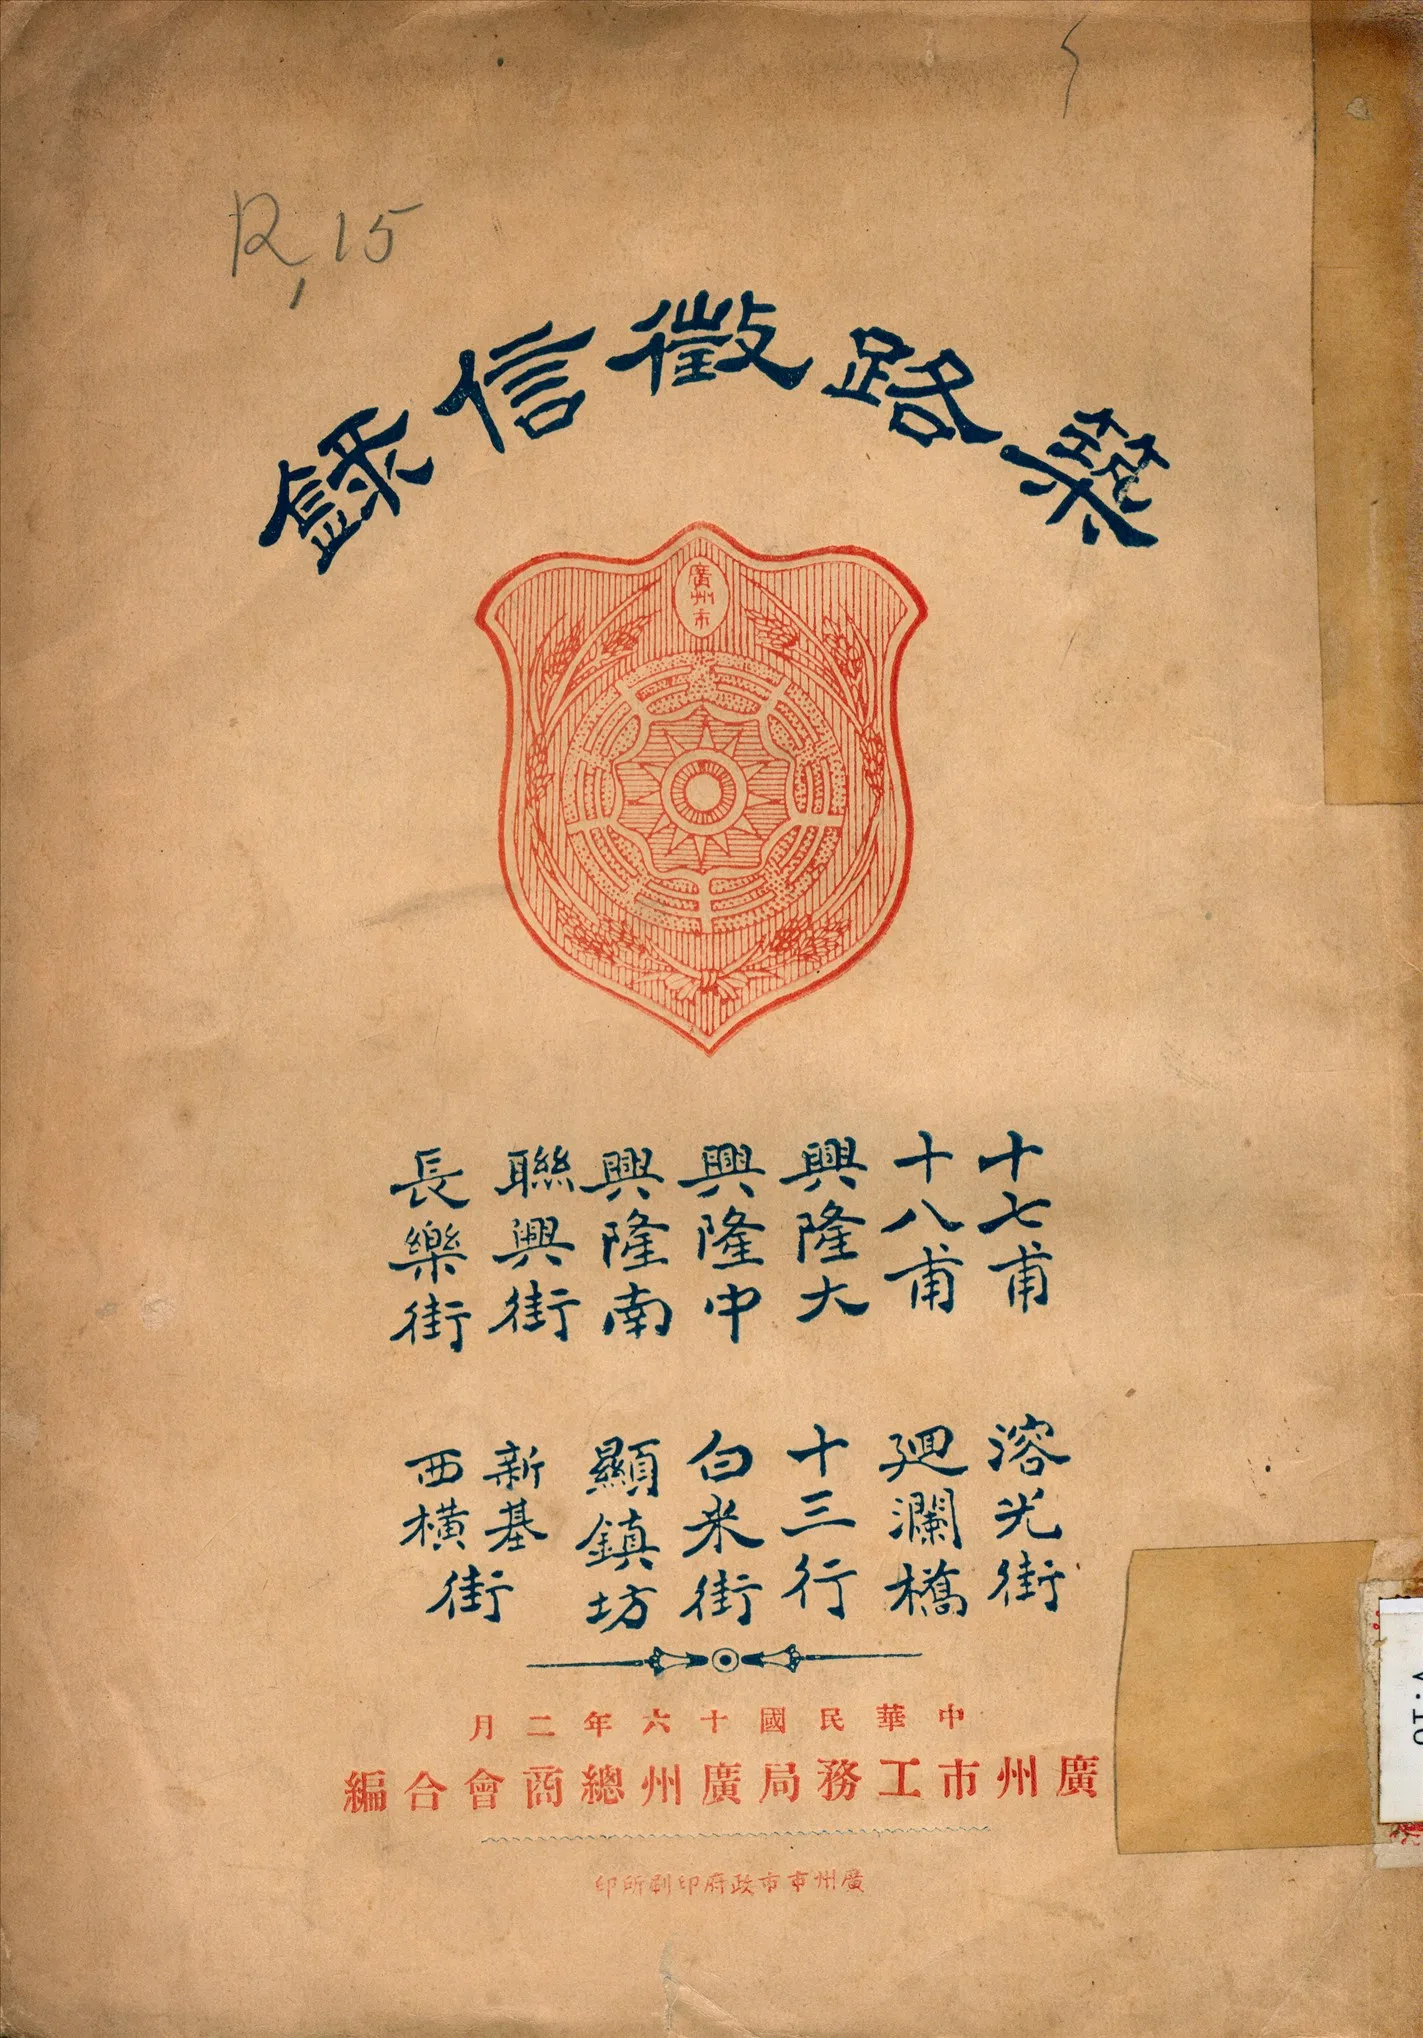 R, 15
築路徵信錄
廣州市
十七甫
十八甫
興隆大
興隆中
興隆南
聯興街
長樂街
溶光街
廻瀾橋
十三行
白米街
顯鎮坊
新基
西橫
街
中華民國十六年二月
廣州市工務局廣州總商會合編
廣州市市政府印刷所印